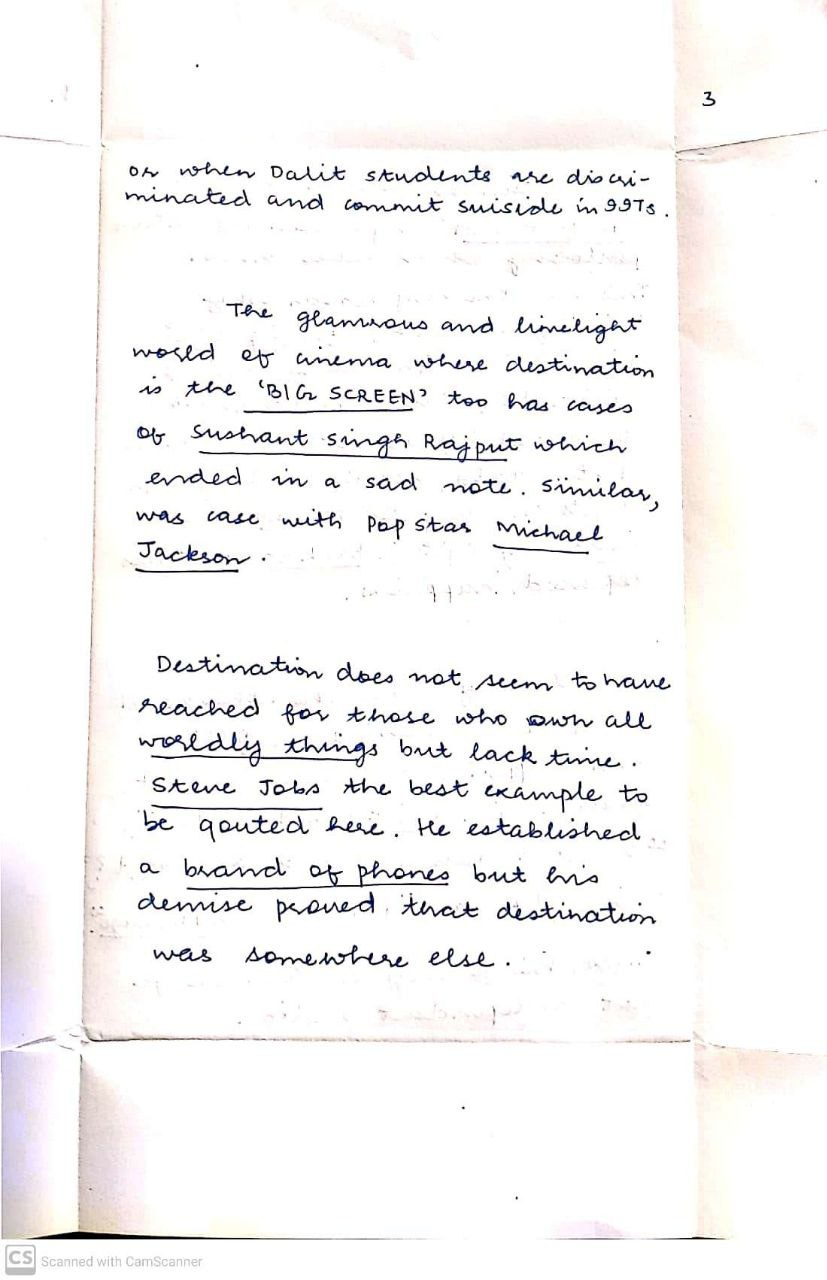 3
or when Dalit students are discri-
minated and commit suiside in IITs.
The glamrous and limelight
world of cinema where destination
is the 'BIG SCREEN' too has cases
of Sushant Singh Rajput which
ended in a sad note. Similar,
was case with Pop Star Michael
Jackson.
Destination does not seem to have
reached for those who own all
worldly things but lack time.
Steve Jobs the best example to
be qouted here. He established
a brand of phones but his
demise proved that destination
was somewhere else.
CS Scanned with CamScanner